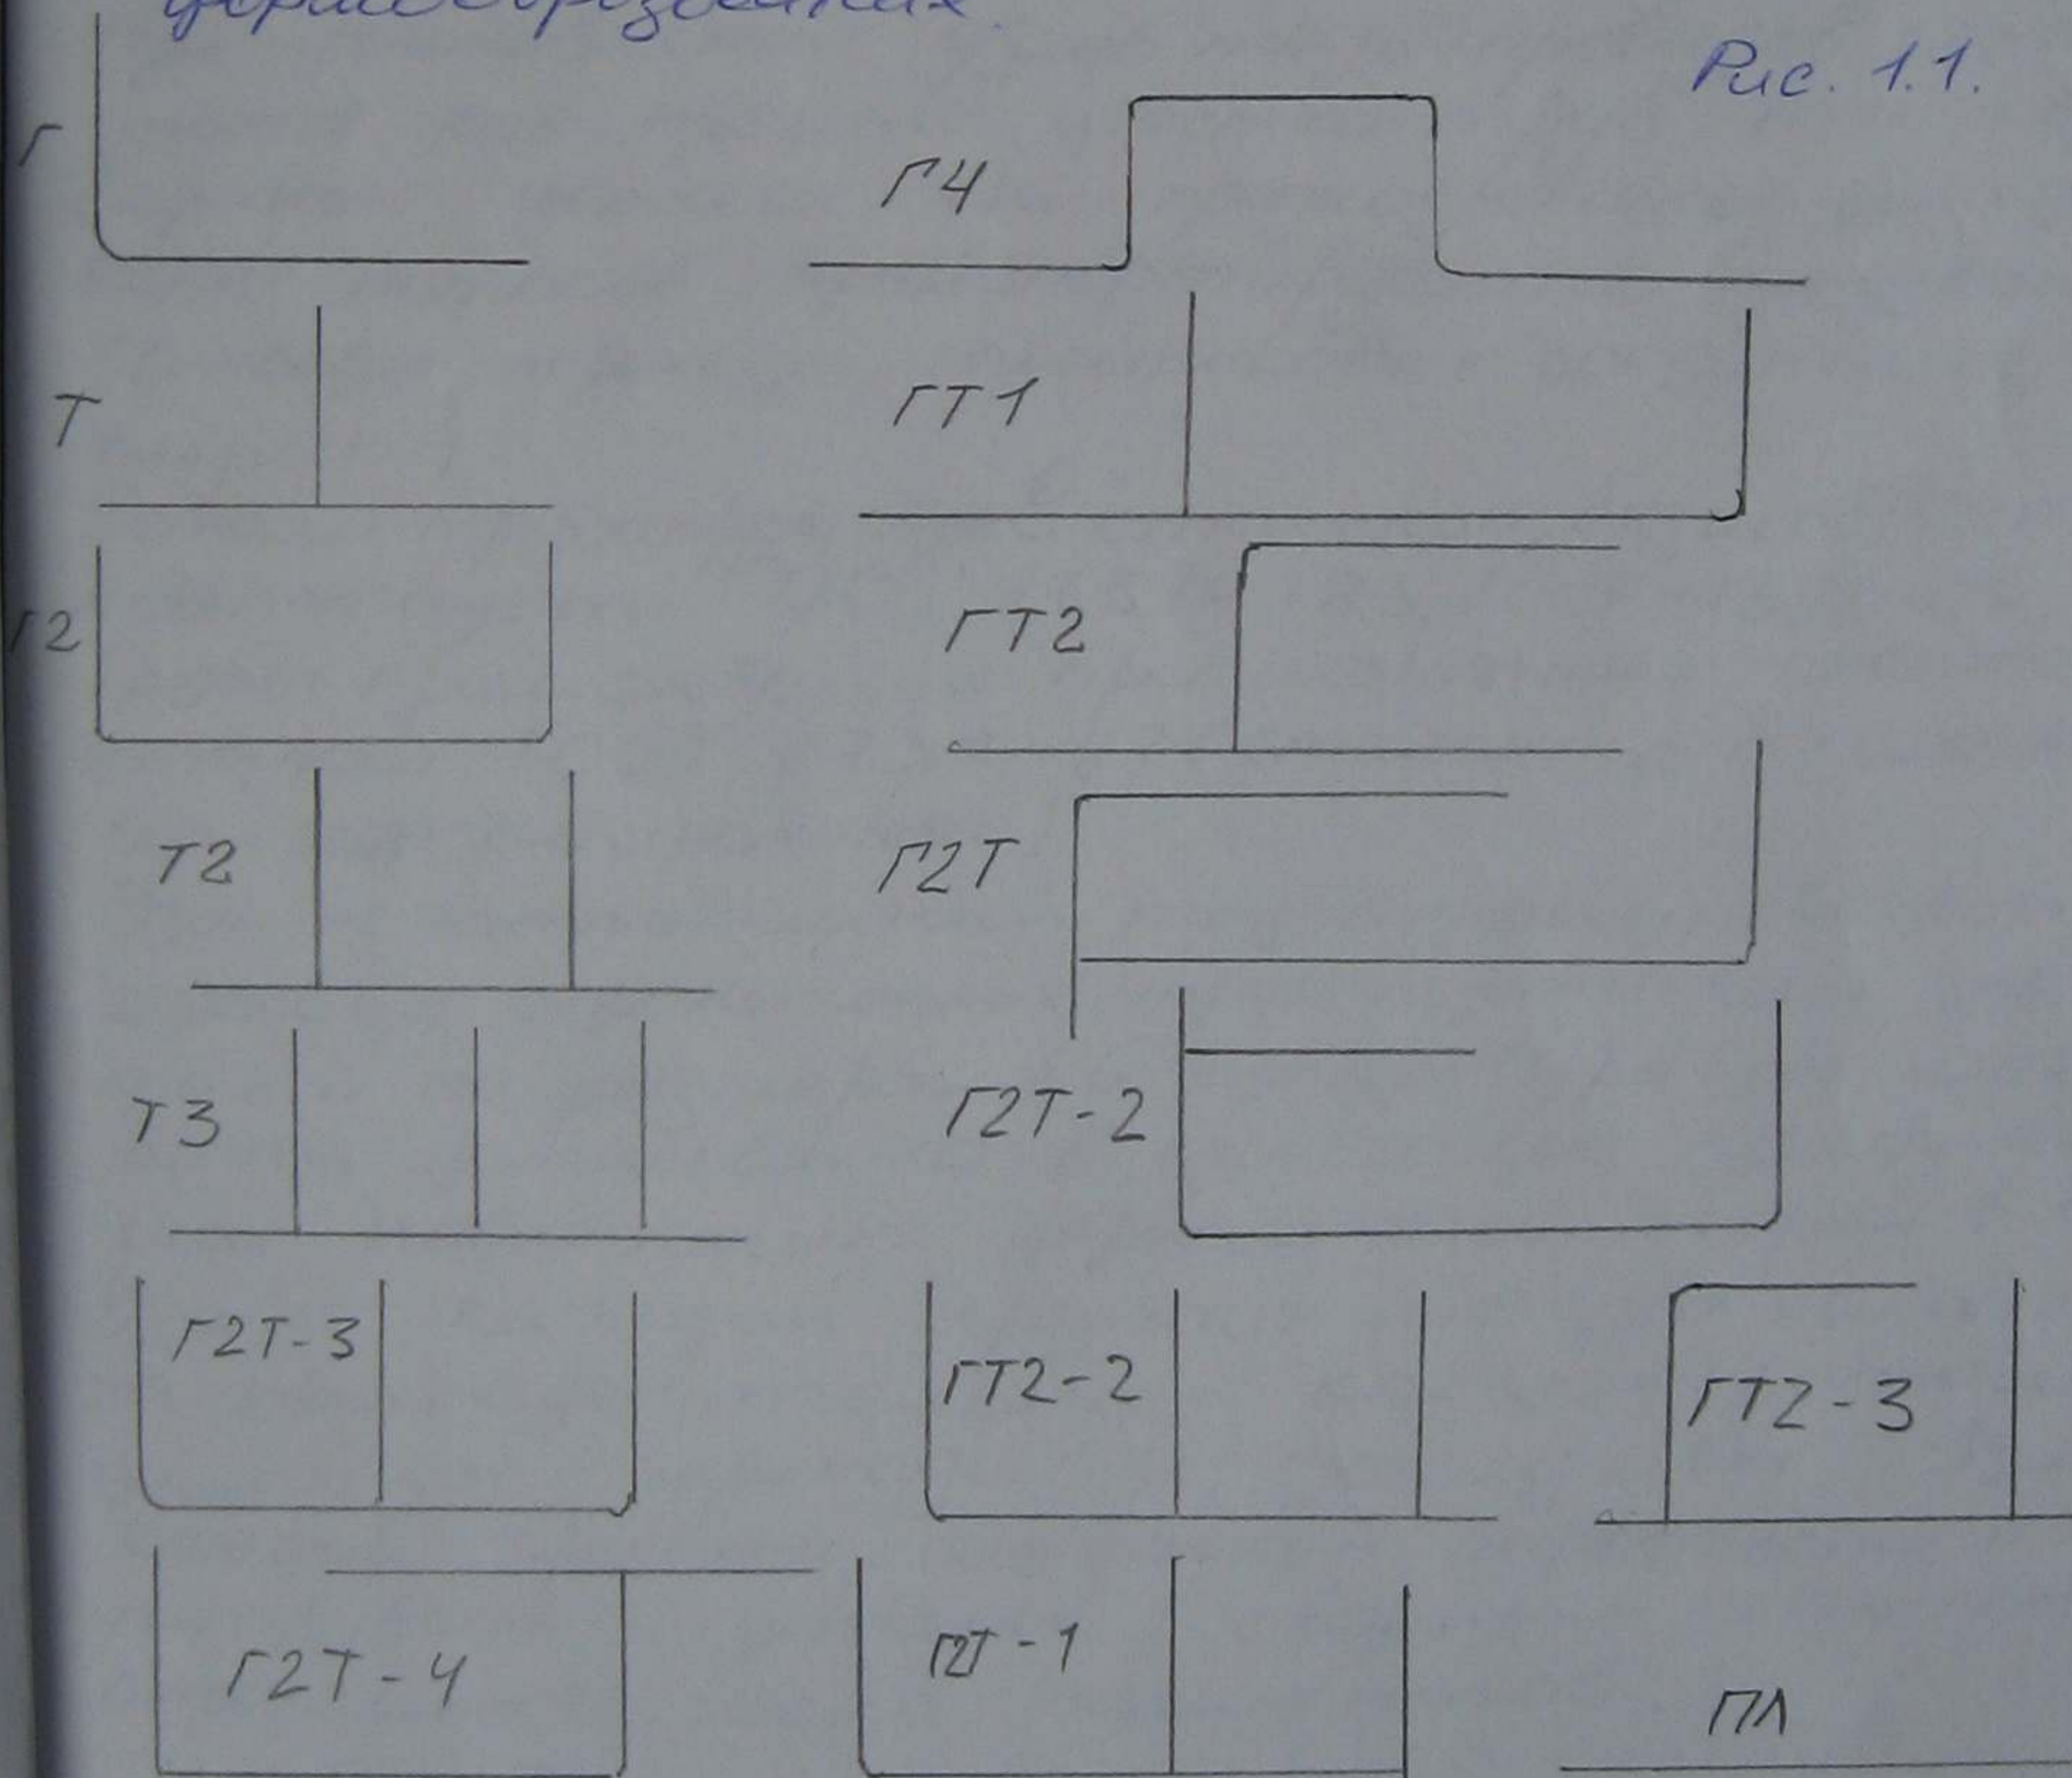 Рис. 1.1.
Г
Г4
Т
ГТ1
Г2
ГТ2
Т2
Г2Т
Т3
Г2Т-2
Г2Т-3
ГТ2-2
ГТ2-3
Г2Т-4
Г2Т-1
ПЛ